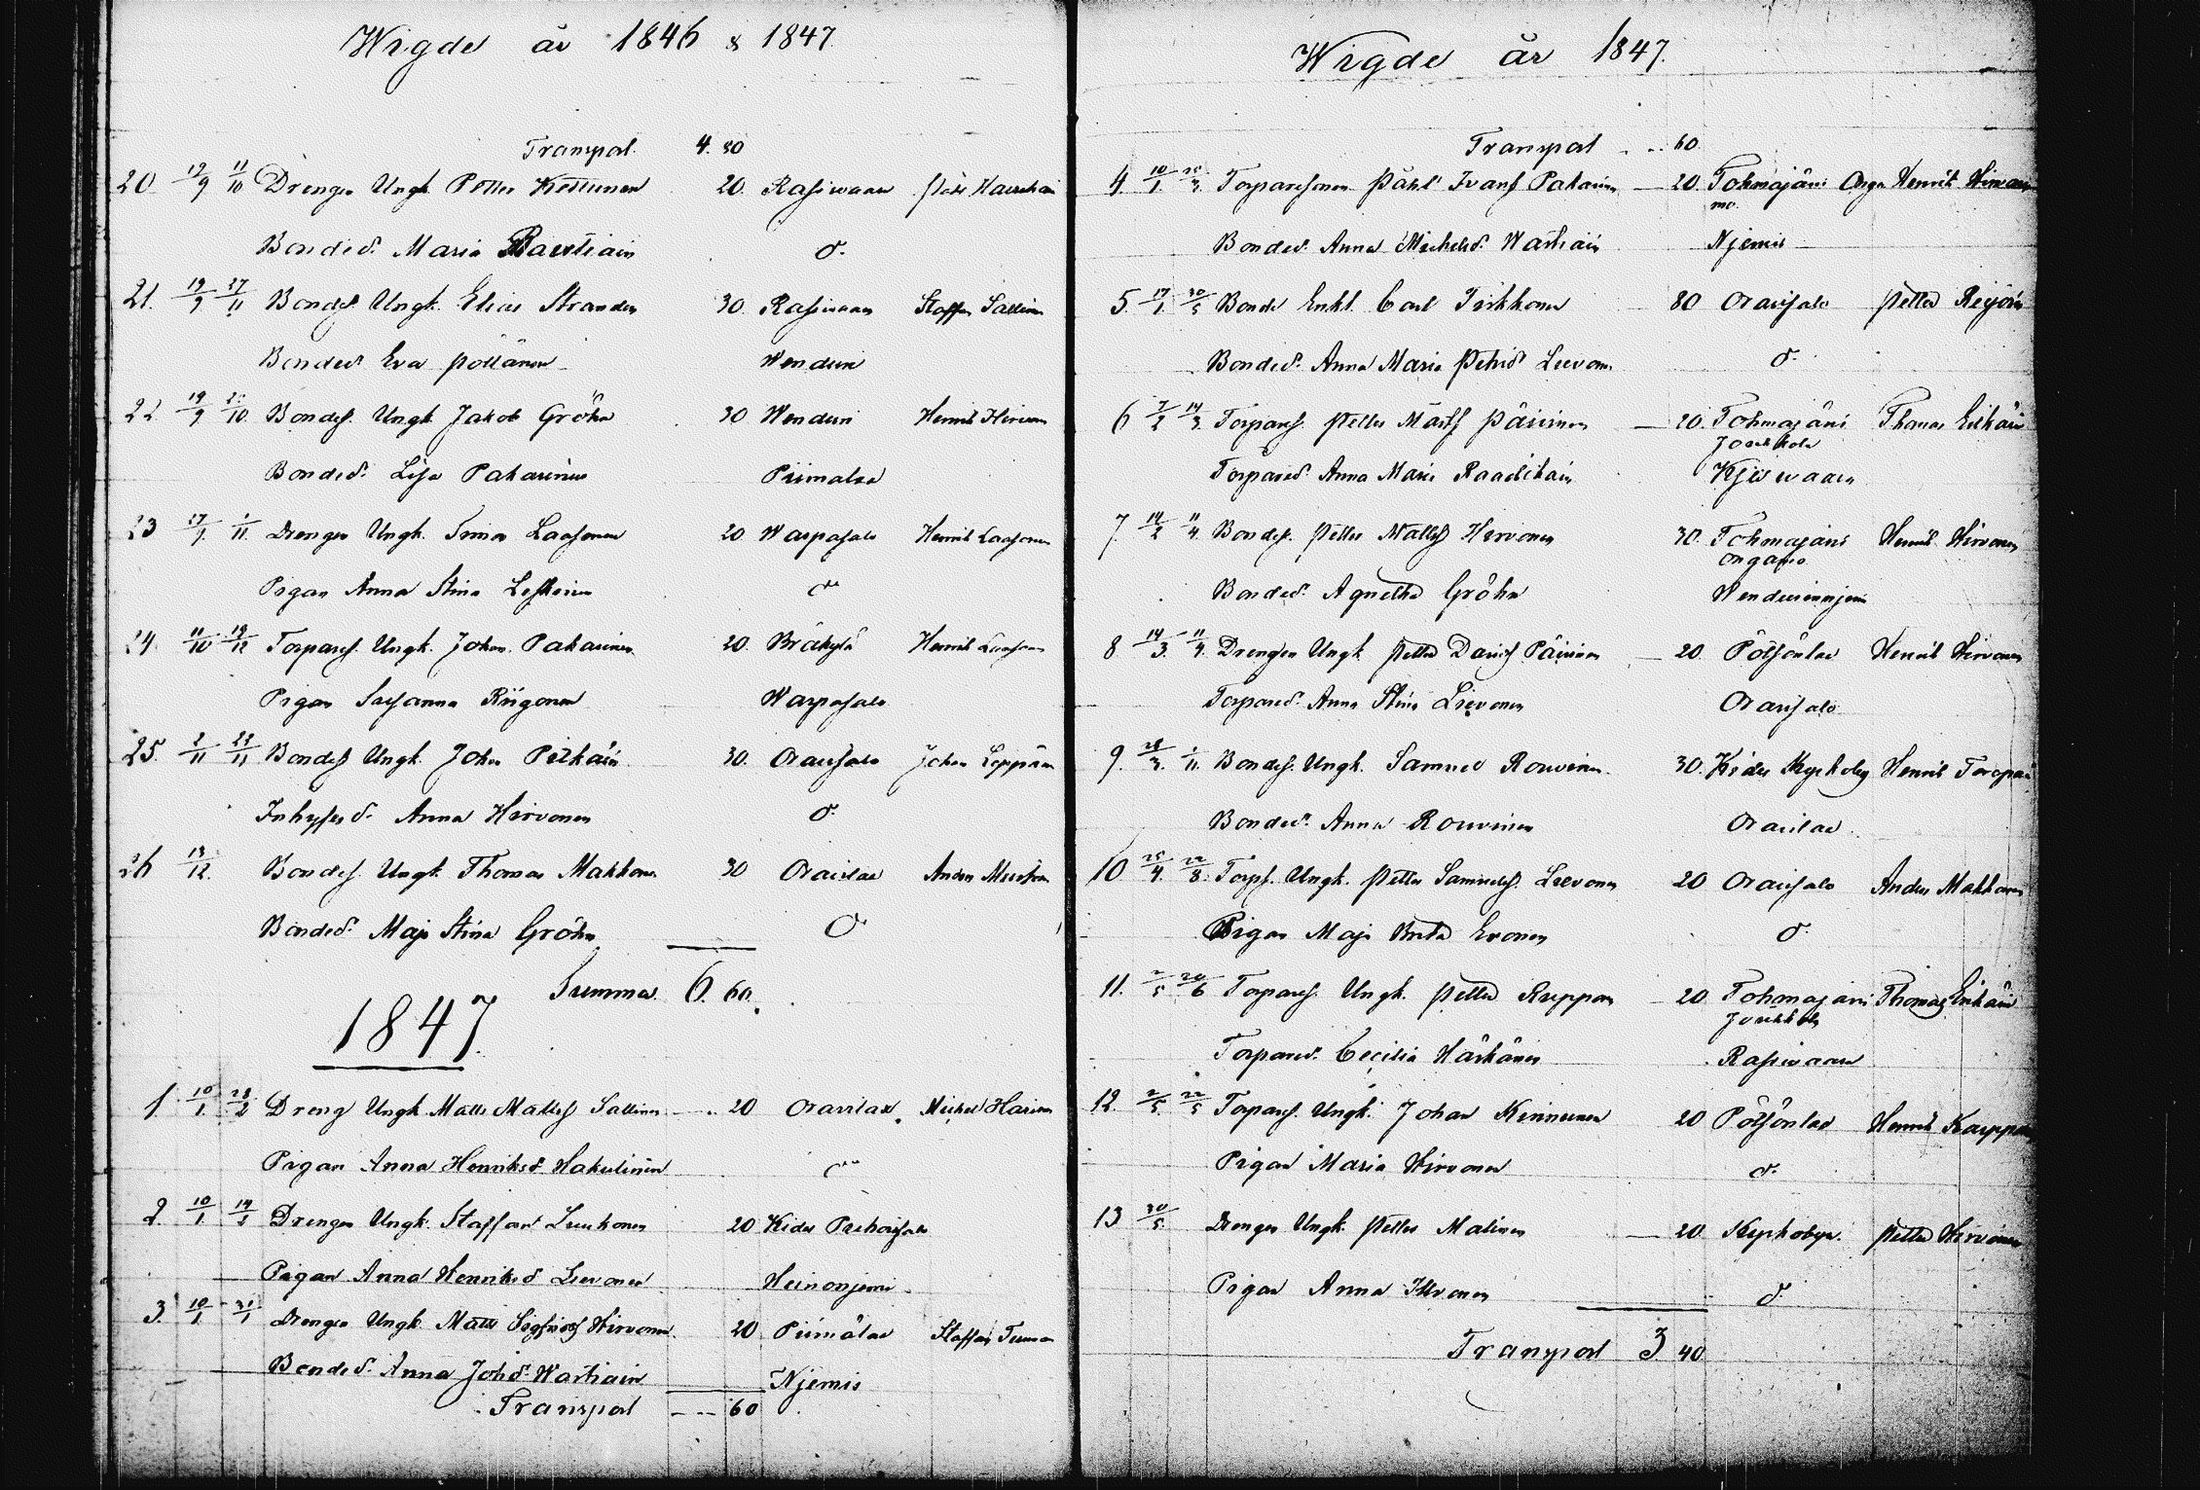 Wigde år 1846 & 1847.
Transport. 4. 80
20 19/9 11/10 Drengen Ungk. Petter Kettunen 20. Rasiwaara Påhl
Bonded. Maria Rautiain d:o
21. 19/9 27/11 Bondes. Ungk. Elias Strander 30. Rasiwaara Staffan Sallinen
Bonded. Eva Pöllänen Wenduri
22 19/9 /10. Bondes. Ungk. Jakob Gröhn 30 Wenduri Henrik Hirvon
Bonded. Lisa Pakarinen Piimalax
23 27/9. 1/11. Drengen Ungk. Simon Laasonen 20 Warpasalo Henrik Laasonen
Pigan Anna Stina Leskinen d:o
24. 11/10 19/12 Torpares. Ungk. Johan Pakarinen 20. Bräkylä Henrik Laasonen
Pigan Susanna Riigonen Warpasalo
25. 2/11 22/11 Bondes Ungk. Johan Pitkäin 30. Oravisalo Johan Leppänen
Inhyses d. Anna Hirvonen d:o
26 13/12. Bondes. Ungk. Thomas Makkonen 30 Oravilax Anders Mustonen
Bonded. Maja Stina Gröhn d:o
Summa. 6. 60.
1847.
1 10/1. 28/2 Dreng Ungk. Matts Mattss Sallinen 20 Oravilax Michel Harinen
Pigan Anna Henriksd. Hakulinen d:o
2. 10/1 14/ Drengen Ungk. Staffan Luukonen 20 Kides Puhoisalo
Pigan Anna Henriksd Lievonen Heinonjemi
3. 10/1 31/1 Drengen Ungk. Matts Sigfridss Hirvonen. 20. Piimälax Staffan Turunen
Bonded. Anna Johsd. Wartiain Njemis
Transport 60
Wigde år 1847.
Transport 60.
4. 10/1 25/3. Torparesonen Påhl Ivars Pakarinen 20. Tohmajärvi Onga Henrik Hirvonen
mo.
Bonded. Anna Michelsd. Wartiain Njemis
5. 17/1. 30/5 Bonde Enkl. Carl Tirkkonen 30 Oravisalo Petter Reijonen
Bonded. Anna Maria Petrsd Lievonen d:o
6 7/2 14/3. Torpares. Petter Märtss Päivinen 20. Tohmajärvi Thomas Eskäin
Jouhkola
Torpared. Anna Maria Raatikain Kjisiwaara
7. 14/2 11/4. Bondes. Petter Mattss Hirvonen 30. Tohmajärvi Henrik Hirvonen
Ongamo
Bonded. Agnetha Gröhn Wendurinnjemi
8. 14/3. 11/4. Drengen Ungk Petter Davids Päivinen 20. Pötsönlax Henrik Hirvonen
Torpared. Anna Stina Lievonen Oravisalo
9. 28/3. /11. Bondes. Ungk. Samuel Rouvinen. 30. Kides Kyrkoby Henrik Toropain
Bonded. Anna Rouvinen Oravilax
10 25/4. 22/8. Torps. Ungk. Petter Samuelss. Lievonen 20 Oravisalo Anders Makkonen
Pigan Maja Brita Evonen d:o
11. 2/5 20/6 Torpares. Ungk. Petter Ruppon 20. Tohmajärvi Thomas Eskäin
Jouhkola
Torpared. Cecilia Härkönen Rasiwaara
12. 2/5. 22/5 Torpares. Ungk. Johan Kinnunen 20 Pötsönlax Henrik Karppinen
Pigan Maria Hirvonen d:o
13 30/5. Drengen Ungk. Petter Malinen 20. Kyrkobyn. Petter Hirvonen
Pigan Anna Hirvonen d:o
Transport 3 40